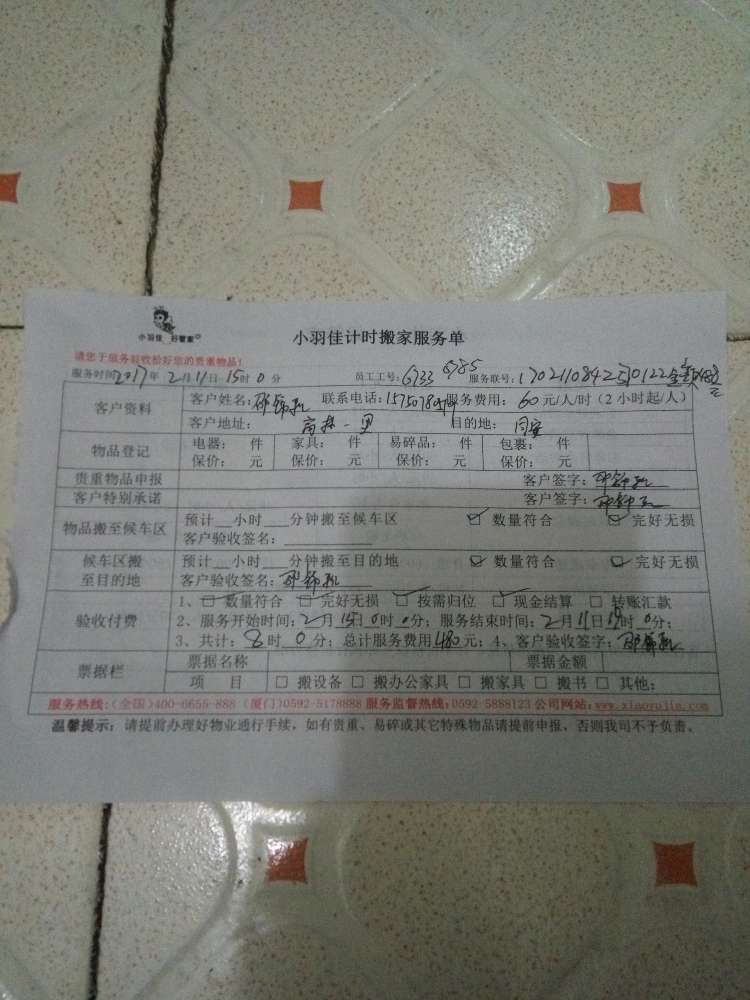 小羽佳 好管家
小羽佳计时搬家服务单
请您于服务前收拾好您的贵重物品!
服务时间:2017年2月11日15时0分 员工工号:6733 6785 服务联号:
客户资料 客户姓名: 联系电话: 服务费用:60元/人/时(2小时起/人)
客户地址: 目的地:同安
物品登记 电器: 件 家具: 件 易碎品: 件 包裹: 件
保价: 元 保价: 元 保价: 元 保价: 元
贵重物品申报 客户签字:
客户特别承诺 客户签字:
物品搬至候车区 预计__小时___分钟搬至候车区 ☑ 数量符合 ☑ 完好无损
客户验收签名:
候车区搬至目的地 预计__小时___分钟搬至目的地 ☑ 数量符合 ☑ 完好无损
客户验收签名:
验收付费 1、☑ 数量符合 ☑ 完好无损 ☑ 按需归位 ☑ 现金结算 □ 转账汇款
2、服务开始时间:2月 日 时0分;服务结束时间:2月11日 时0分;
3、共计:8时0分;总计服务费用480元;4、客户验收签字:
票据栏 票据名称 票据金额
项 目 □ 搬设备 □ 搬办公家具 □ 搬家具 □ 搬书 □ 其他:
服务热线:(全国)400-6655-888 (厦门)0592-5178888 服务监督热线:0592-5888123 公司网站:www.xiaoyujia.com
温馨提示:请提前办理好物业通行手续,如有贵重、易碎或其它特殊物品请提前申报,否则我司不予负责。